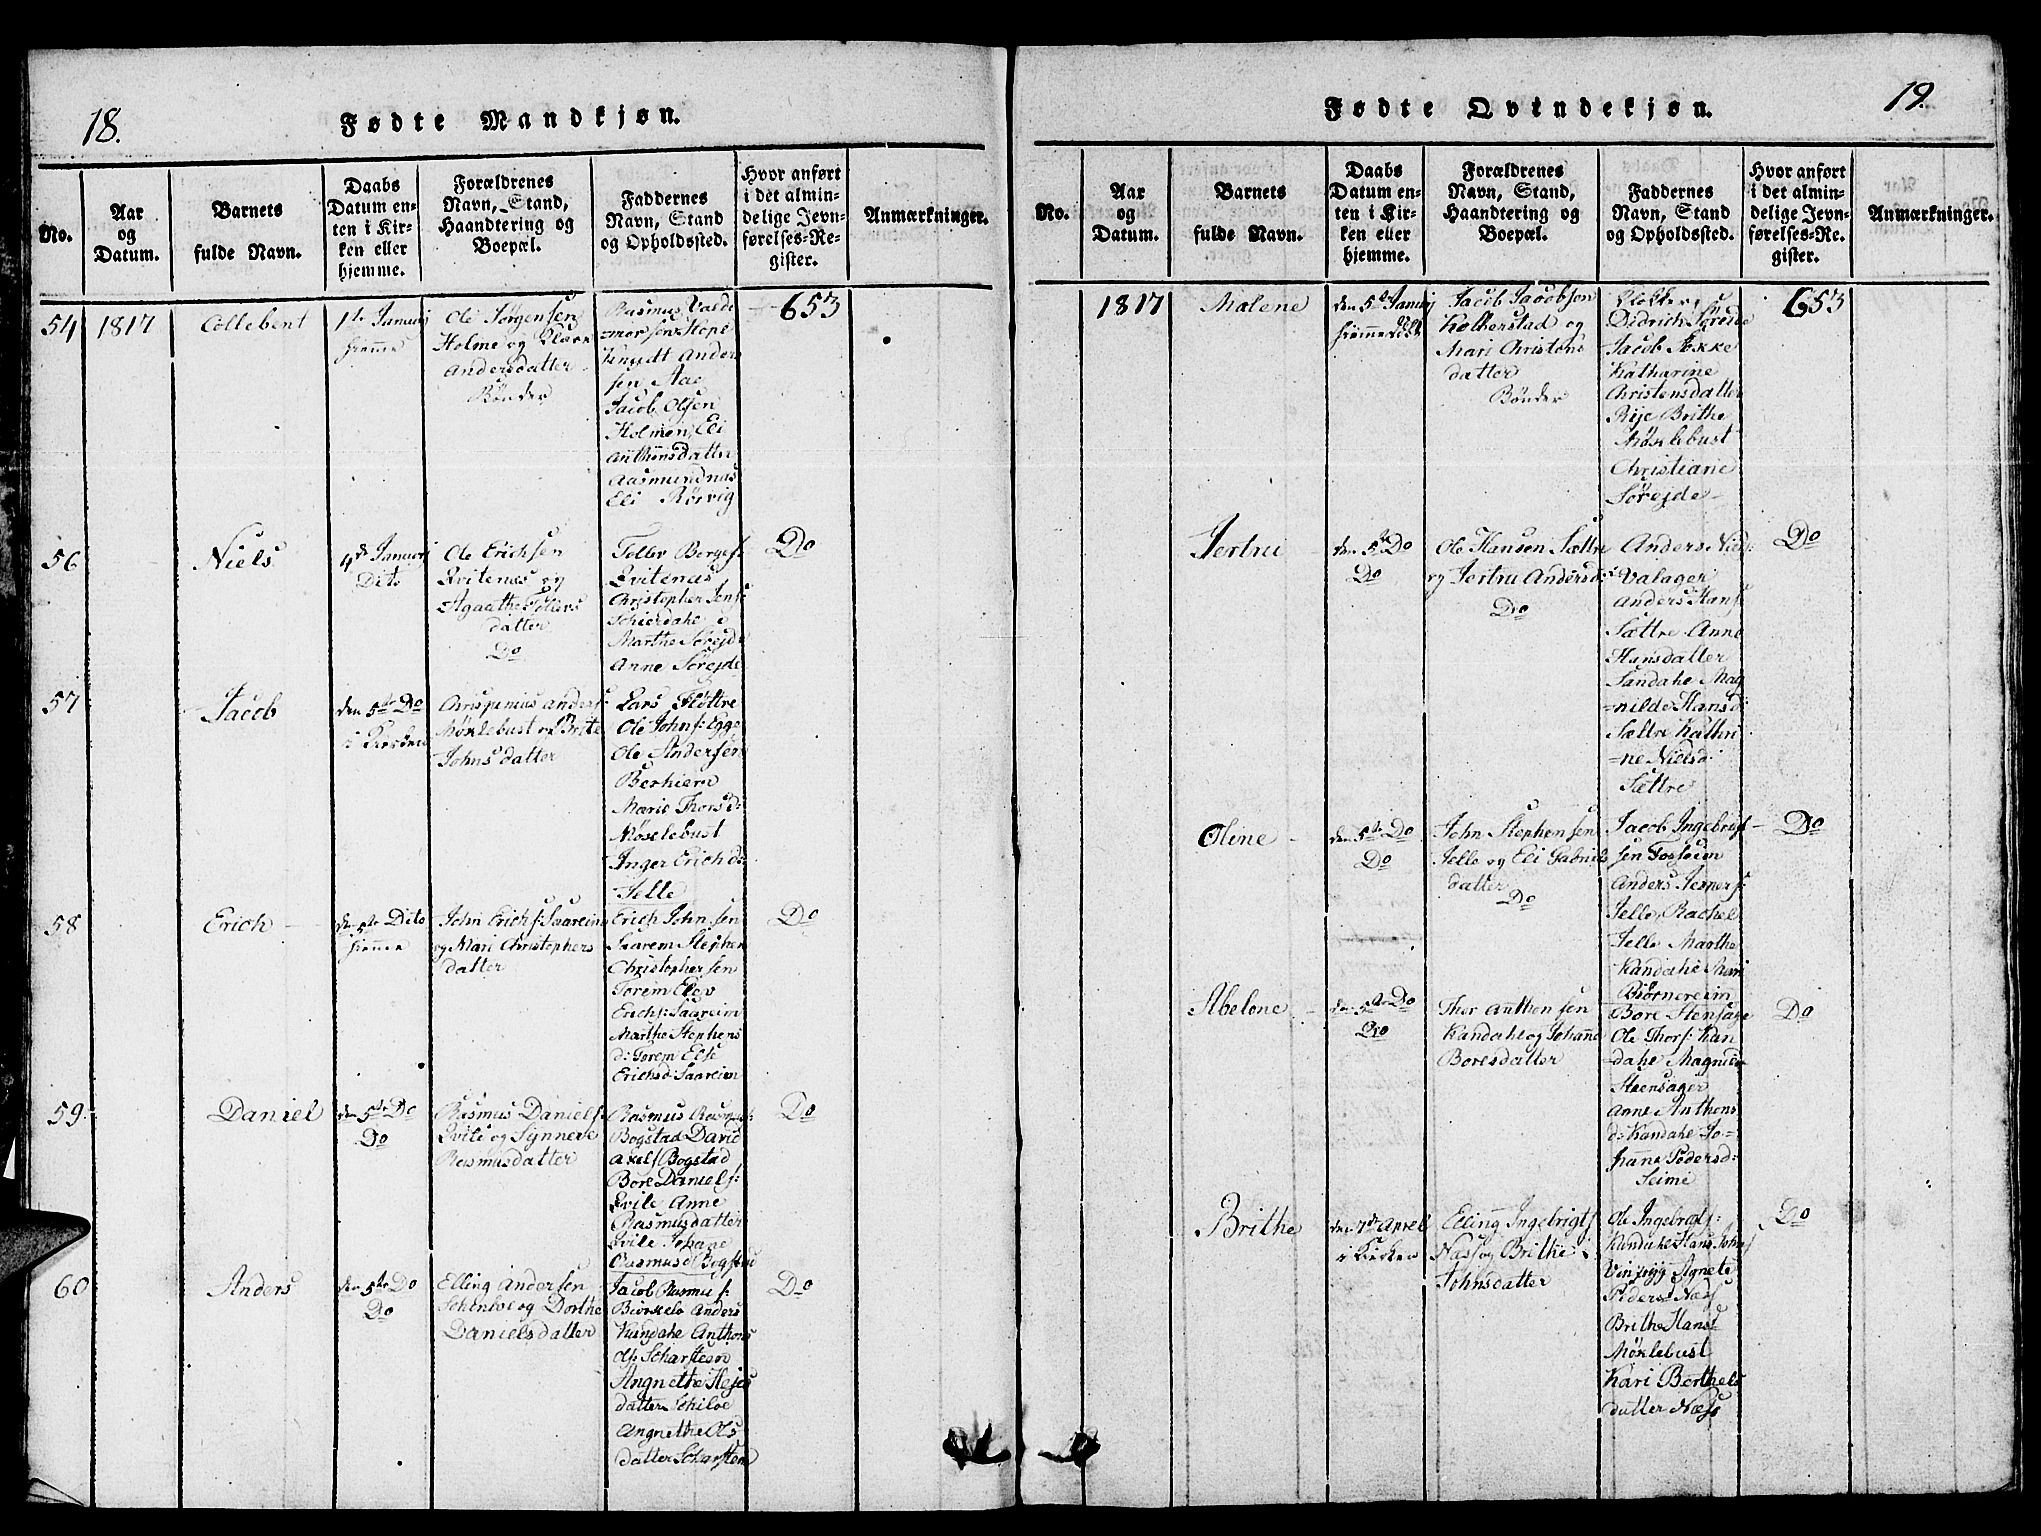 18.
Fødte Mandkjøn.
No.
Aar
og
Datum.
Barnets
fulde Navn.
Daabs
Datum en-
ten i Kir-
ken eller
hjemme.
Forældrenes
Navn, Stand,
Haandtering og
Boepæl.
Faddernes
Navn, Stand
og Opholdssted.
Hvor anført
i det almin-
delige Jevn-
førelses-Re-
gister.
Anmærkninger.
54
1817
Collebent
1ste Januarj
hiemme
Ole Jørgensen
Holme og
Andersdatter
Bønder
Rasmus Valde
=morsen Stope
Knudt Ander
sen Aae
Jacob Olsen
Holmen, Eli
Anthonsdatter
Aasmundnæs
Eli Rørvig
653
56
Niels
4de Januarj
Dito
Ole Erichsen
Qvitenæs og
Agaathe Tollers
datter
Do
Toller Borges:
Qvitenæs
Christopher Jens:
Schiesdahe
Marthe Sørejde
Anne Sørejde
Do
57
Jacob
den 5te Do
i Kirsken
Chrispinius Anders:
Møklebust og Brite
Johnsdatter
Lars Fløttre
Ole Johns: Egge
Ole Andersen
Berhiem
Marie Thorsd:
Møselebust
Inger Erichd:
Jelle
58
Erich
den 5te Dito
hiemme
John Erichs: Saareim
og Mari Christophers
datter
Erich Johnsen
Saarem Stephen
Christophersen
Torem Elev
Erichs: Saareim
Marthe Stephens
d: Torem Else
Erichsd: Saareim
Do
59
Daniel
den 5te Do
Do
Rasmus Daniels:
Qvile og Synneve
Rasmusdatter
Rasmus Rasmus:
Bogstad David
Axels Bogstad
Bore Daniels:
Qvile Anne
Rasmusdatter
Qvile Johane
Rasmusd Bogstad
Do
60
Anders
den 5te Do
Do
Elling Andersen
og Dorthe
Danielsdatter
Jacob Rasmus:
Biørkelo Anders
Kandahe Anthons
Ols: Scharsteen
Angnethe
datter
Angnethe Ols
datter Scharsteen
Do
19.
Fødte Qvindekjøn.
No.
Aar
og
Datum.
Barnets
fulde Navn.
Daabs
Datum en-
ten i Kir-
ken eller
hjemme.
Forældrenes
Navn, Stand,
Haandtering og
Boepæl.
Faddernes
Navn, Stand
og Opholdssted.
Hvor anført
i det almin-
delige Jevn-
førelses-Re-
gister.
Anmærkninger.
1817
Malene
den 5te Januarj
hiemmedøbt
Jacob Jacobsen
Kolberstad og
Mari Christens
datter
Bønder
Klokker
Didrich Sørejde
Jacob Nøkke
Katharine
Christensdatter
Rije Brithe
Møklebust
Christiane
Sørejde
653
Jertru
den 5te Do
Do
Ole Hansen Sættre
og Jertru Andersd:
Do
Anders Niels:
Valager
Anders Hans:
Sættre Anne
Hansdatter
Sandahe Mag
=nilde Hansd:
Sættre Kathri
=ne Nielsd:
Sættre
Do
Oline
den 5te Do
Do
John Stephensen
Jelle og Eli Gabriels
datter
Do
Jacob Ingebrigt
sen Fosheim
Anders Jerners:
Jelle, Rachel
Jelle Marthe
Kandahe Mari
Biørnereim
Do
Abelone
den 5te Do
Do
Thor Anthonsen
Kandahl og Johanne
Boresdatter
Bore Stensage
Ole Thors: Kan
=dahe Magnild
Steensager
Anne Anthons
d: Kandahe Jo=
hanne Pedersd:
Seime
Do
Brithe
den 7de Aprel
i Kirken
Elling Ingebrigts
Næss og Brithe
Johnsdatter
Ole Ingebrigts:
Kandahe Hans Johns
Agnete
Peders Næss
Brithe Hans
Møklebust
Kari Berthels
datter Næss
Do